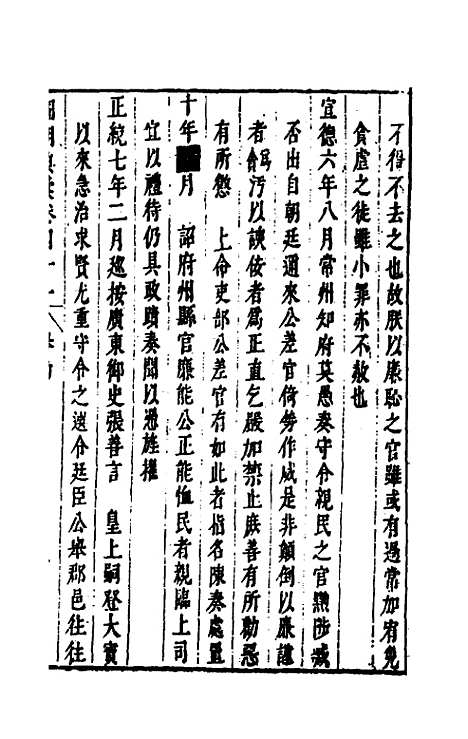 不得不去之也故朕以廉恥之官雖或有過常加宥免
貪虐之徒雖小罪亦不赦也
宣德六年八月常州知府莫愚奏守令親民之官黜陟臧
否出自朝廷邇來公差官倚勢作威是非顛倒以廉謹
者為貪污以諛佞者為正直乞嚴加禁止庶善有所勸惡
有所懲　上命吏部公差官有如此者指名陳奏處置
十年月　詔府州縣官廉能公正能恤民者親臨上司
宜以禮待仍具政蹟奏聞以憑旌擢
正統七年二月巡按廣東御史張善言　皇上嗣登大寶
以來急治求賢尤重守令之選令廷臣公舉郡邑往往